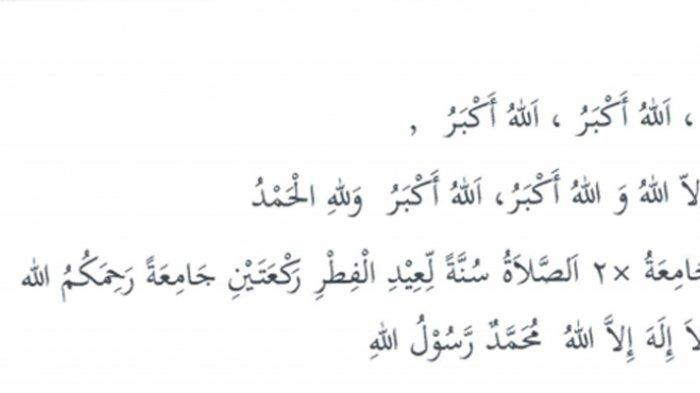 ، اَللهُ أَكْبَرُ ، اَللهُ أَكْبَرُ ,
اللهُ وَ اللهُ أَكْبَرُ، اَللهُ أَكْبَرُ وَللهِ الْحَمْدُ
×٢ اَلصَّلاَةُ سُنَّةً لِّعِيْدِ الْفِطْرِ رَكْعَتَيْنِ جَامِعَةً رَحِمَكُمُ الله
إِلَهَ إِلاَّ اللهُ مُحَمَّدٌ رَّسُوْلُ اللهِ